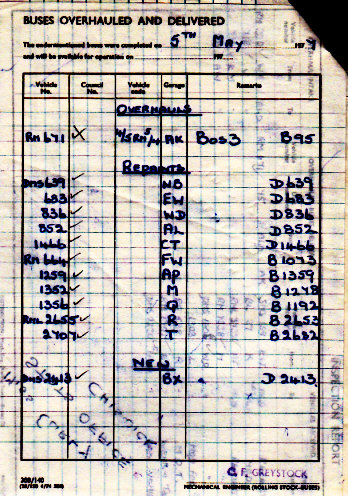 BUSES OVERHAULED AND DELIVERED
The undermentioned buses were completed on 5TH May 197
and will be available for operation on 197
Vehicle No. Council No. Vehicle code Garage Remarks
OVERHAULS
RM 671 X AK BOS3 B95
REPAINTS
DMS 639 ✓ NB D639
683 ✓ EW D683
836 ✓ WD D836
852 ✓ AL D852
1466 ✓ CT D1466
RM 664 ✓ FW B1073
1259 ✓ AP B1359
1352 ✓ M B1278
1356 ✓ Q B1192
RML 2655 ✓ R B2653
2707 ✓ T B2682
NEW
DMS 2413 ✓ BX D2413
CHISWICK
OFFICE
COPY
208/140
C. F. GREYSTOCK
MECHANICAL ENGINEER (ROLLING STOCK-BUSES)
INSPECTION REPORT